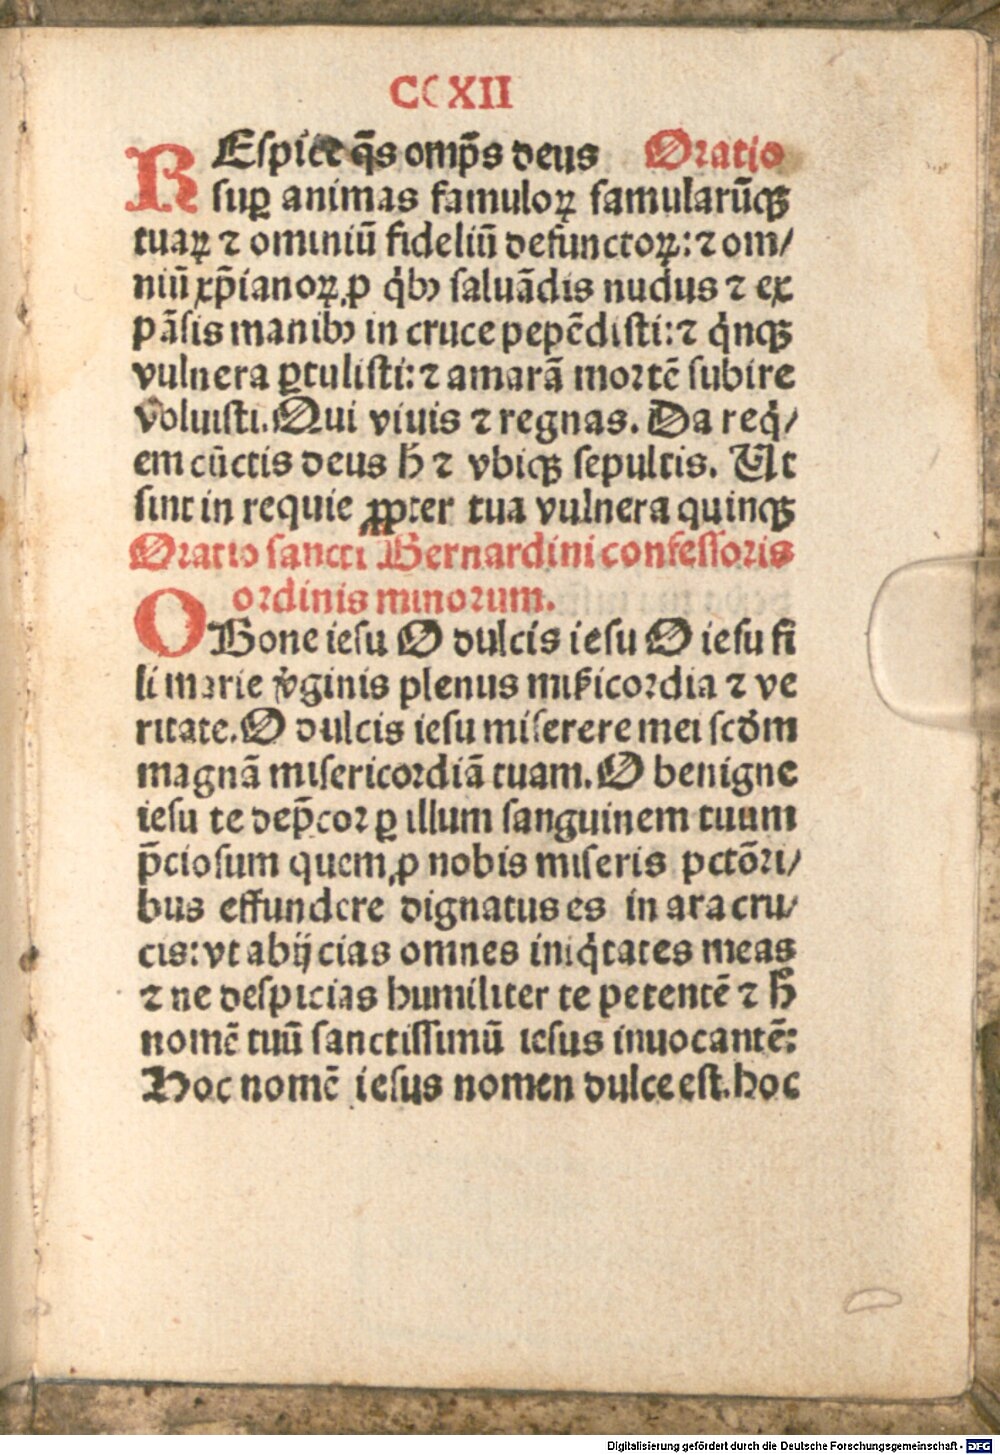 CCXII
REspice q̄s omp̄s deus Oratio
suꝑ animas famuloꝝ famularūqꝫ
tuaꝝ ⁊ ominiū fideliū defunctoꝝ: ⁊ om/
niū xp̄ianoꝝ ꝓ qͥbꝫ saluādis nudus ⁊ ex
pāsis manibꝫ in cruce pepēdisti: ⁊ qͥnqꝫ
vulnera ꝑtulisti: ⁊ amarā mortē subire
voluisti. Qui viuis ⁊ regnas. Da reqͥ/
em cūctis deus h̄ ⁊ vbiqꝫ sepultis. Ut
sint in requie ꝓpter tua vulnera quinqꝫ
Oratio sancti Bernardini confessoris
ordinis minorum.
O Bone iesu O dulcis iesu O iesu fi
li marie vͥginis plenus mis̄icordia ⁊ ve
ritate. O dulcis iesu miserere mei scd̄m
magnā misericordiā tuam. O benigne
iesu te dep̄cor ꝑ illum sanguinem tuum
p̄ciosum quem ꝓ nobis miseris pctōri/
bus effundere dignatus es in ara cru/
cis: vt abijcias omnes iniqͥtates meas
⁊ ne despicias humiliter te petentē ⁊ h̄
nomē tuū sanctissimū iesus inuocantē:
Hoc nomē iesus nomen dulce est. hoc
Digitalisierung gefördert durch die Deutsche Forschungsgemeinschaft - DFG